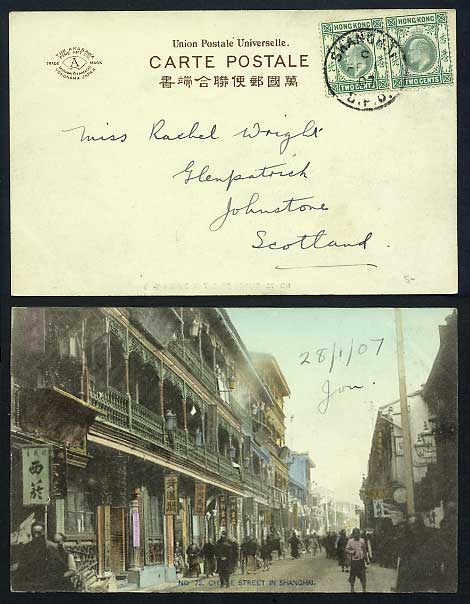 Union Postale Universelle.
CARTE POSTALE
萬國郵便聯合端書
TRADE MARK
A
YOKOHAMA JAPAN
HONG KONG
TWO CENTS
HONG KONG
TWO CENTS
SHANGHAI
Miss Rachel Wright
Glenpatrick
Johnstone
Scotland.
28/1/07
Jou.
西菸
NO 72. CHESE STREET IN SHANGHAI.